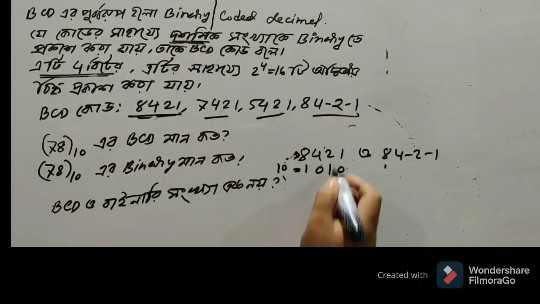 BCD এর পূর্ণরূপ হলো Binary Coded decimal.
যে কোডের সাহায্যে দশমিক সংখ্যাকে Binary তে
প্রকাশ করা যায়, তাকে BCD কোড বলে।
এটি 4 বিটের, এটির সাহায্যে 2⁴=16 টি অদ্বিতীয়
চিহ্ন প্রকাশ করা যায়।
BCD কোড: 8421, 7421, 5421, 84-2-1
(78)₁₀ এর BCD মান কত?
(78)₁₀ এর Binary মান কত?
8421 ও 84-2-1
10 = 1010
BCD ও বাইনারি সংখ্যা এক নয়?
Created with Wondershare FilmoraGo